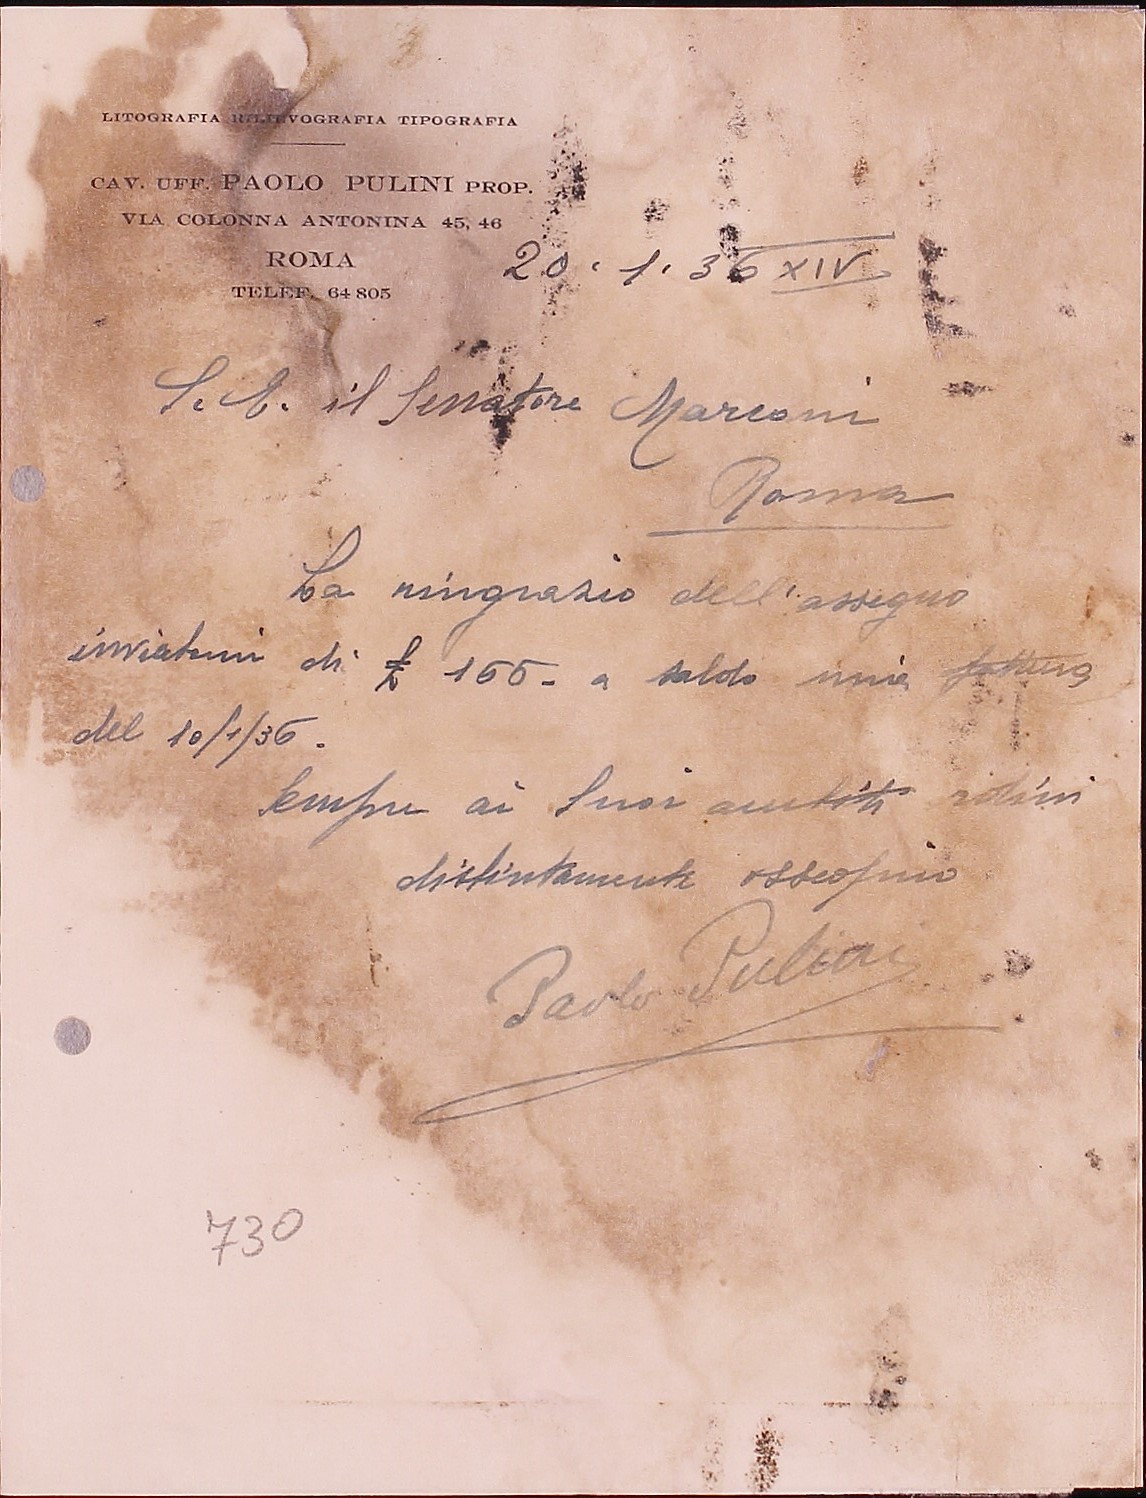 LITOGRAFIA RILIEVOGRAFIA TIPOGRAFIA
CAV. UFF. PAOLO PULINI PROP.
VIA COLONNA ANTONINA 45, 46
ROMA
TELEF. 64 805
20.1.36 XIV
S. E. il Senatore Marconi
Roma
La ringrazio dell'assegno
inviatomi di £ 155.- a saldo mia fattura
del 10/1/36.
Sempre ai Suoi ordini
distintamente
Paolo Pulini
730